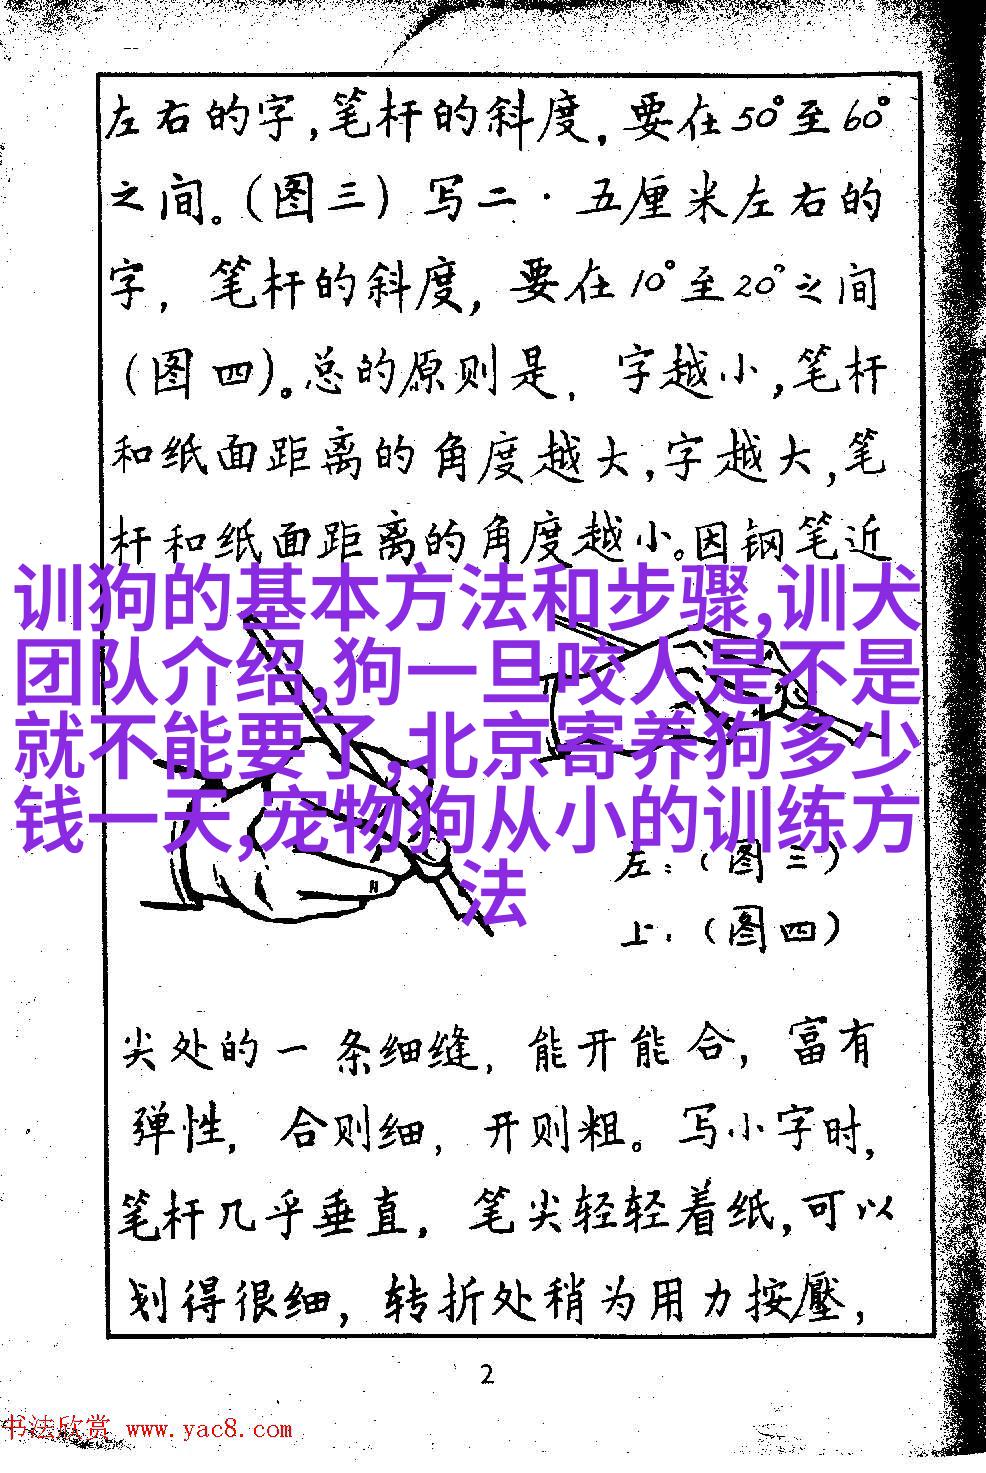 左右的字,笔杆的斜度,要在50°至60°
之间。(图三)写二·五厘米左右的
字,笔杆的斜度,要在10°至20°之间
(图四)。总的原则是,字越小,笔杆
和纸面距离的角度越大,字越大,笔
杆和纸面距离的角度越小。因钢笔近
训狗的基本方法和步骤,训犬
团队介绍,狗一旦咬人是不是
就不能要了,北京寄养狗多少
钱一天,宠物狗从小的训练方
法
左:(图三)
上:(图四)
尖处的一条细缝,能开能合,富有
弹性,合则细,开则粗。写小字时,
笔杆几乎垂直,笔尖轻轻着纸,可以
划得很细,转折处稍为用力按壓,
2
书法欣赏 www.yac8.com